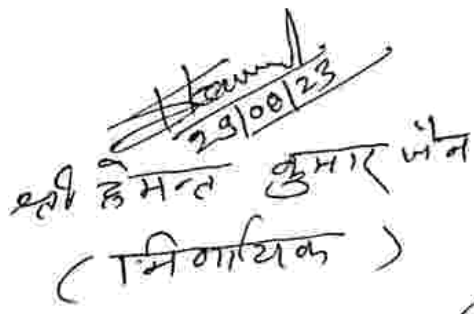 29/08/23
श्री हेमन्त कुमार जैन
(निर्णायक)